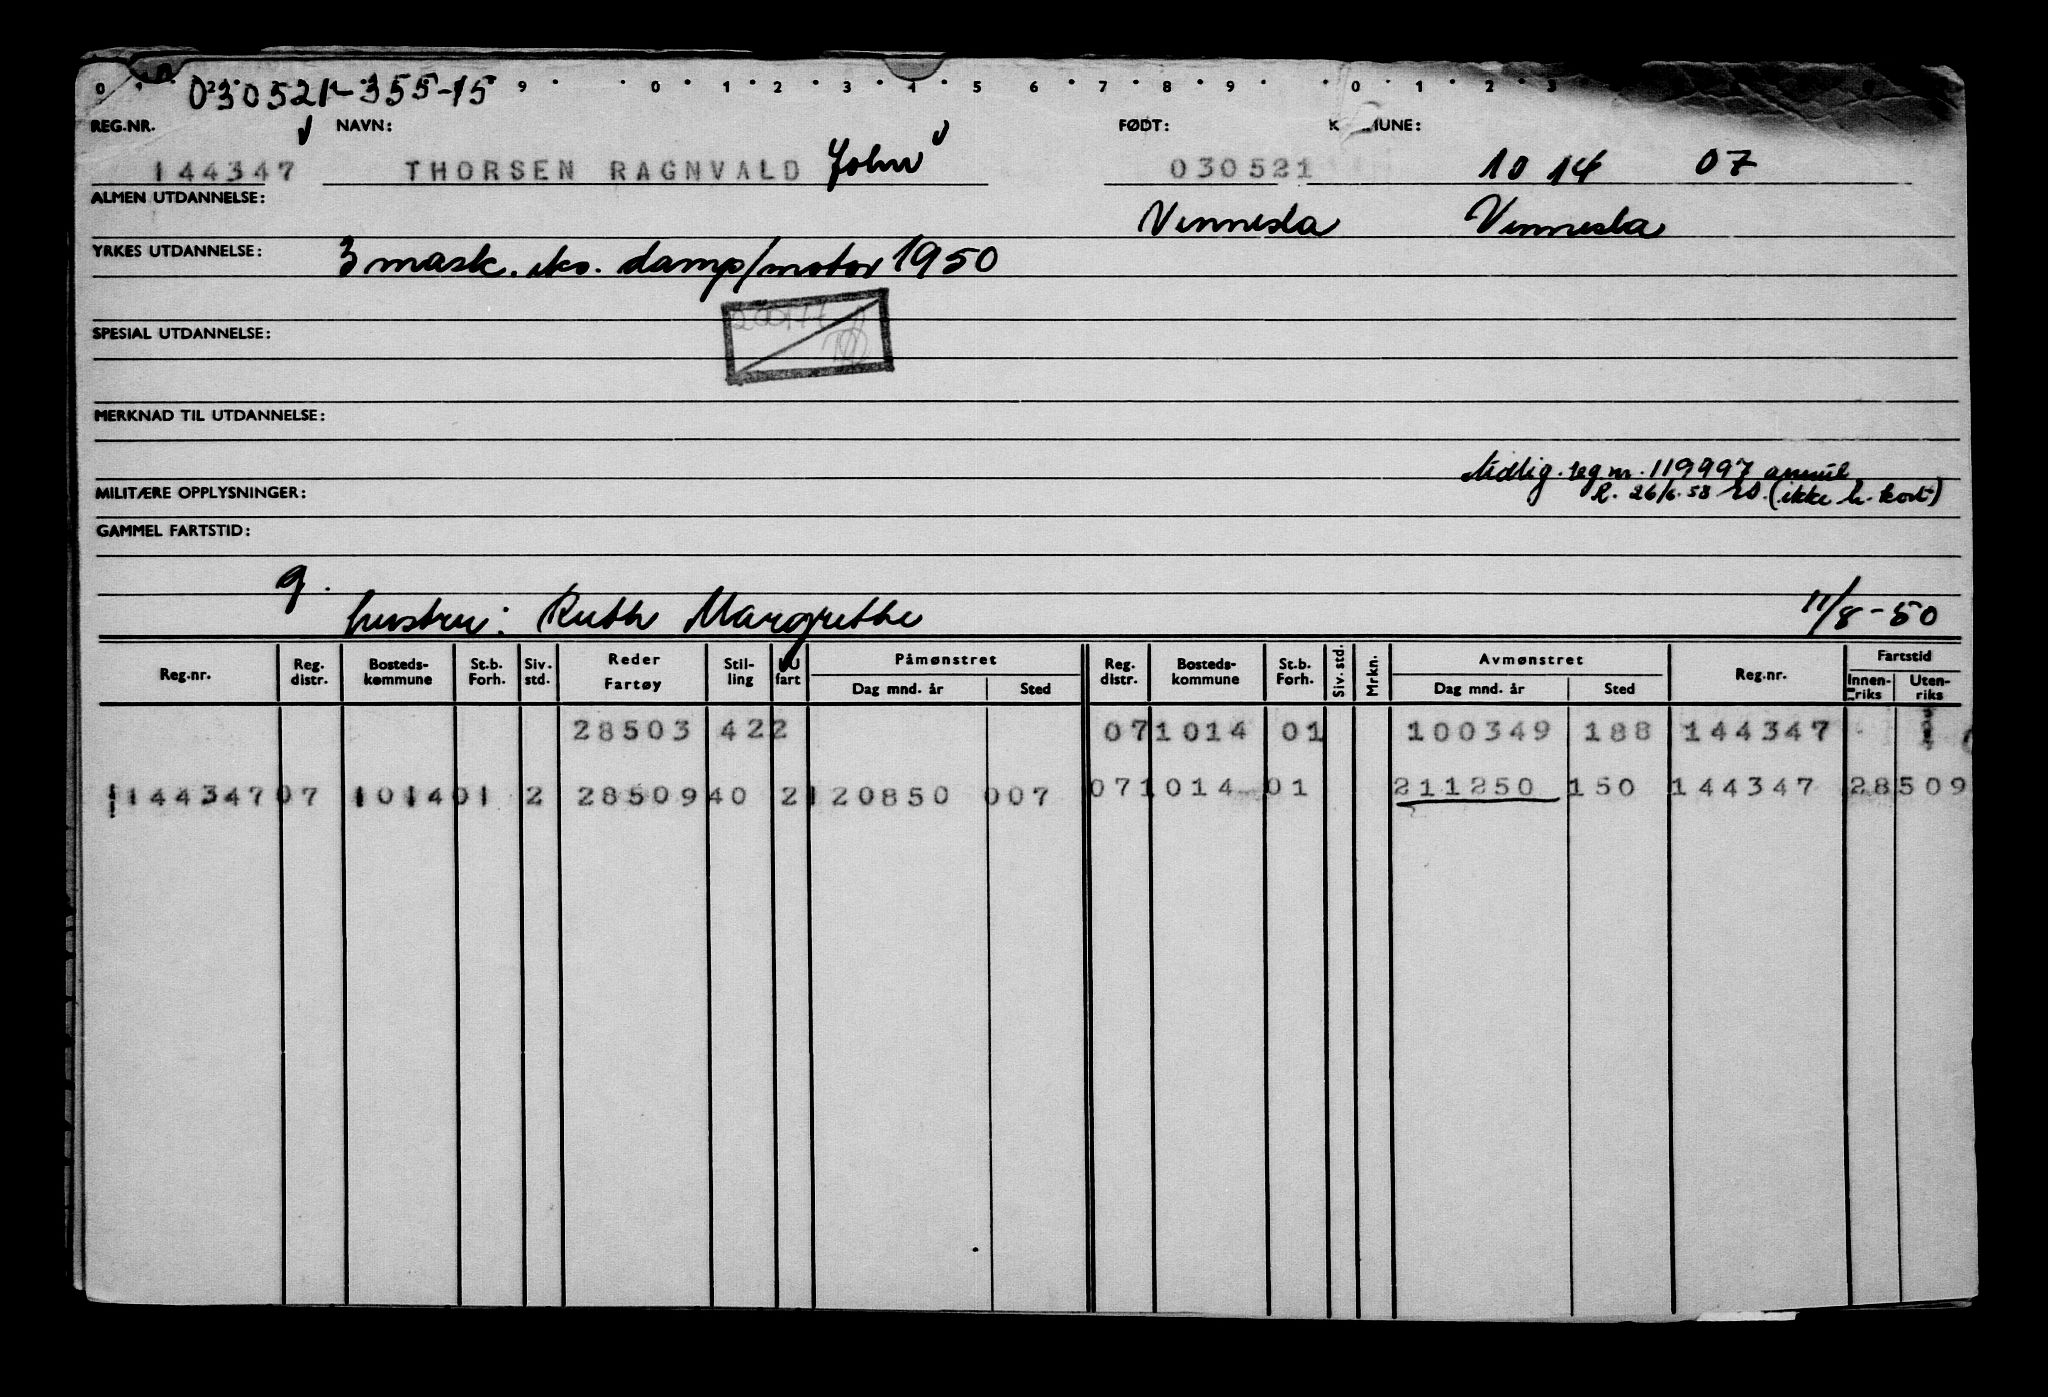 030521-355-15
0 9 0 1 2 3 4 5 6 7 8 9 0 1 2 3
REG.NR. NAVN: FØDT: KOMMUNE:
144347 THORSEN RAGNVALD John 030521 10 14 07
ALMEN UTDANNELSE: Vennesla Vennesla
YRKES UTDANNELSE: 3 mask. eks. damp/motor 1950
SPESIAL UTDANNELSE:
MERKNAD TIL UTDANNELSE:
Midlig. reg nr. 119997 annul
MILITÆRE OPPLYSNINGER: R. 26/6.58 (ikke h. kort)
GAMMEL FARTSTID:
g.
hustru: Ruth Margrethe 11/8-50
Reg.nr. Reg. distr. Bosteds-kommune St.b. Forh. Siv. std. Reder Fartøy Stil-ling fart Påmønstret Dag mnd. år Sted Reg. distr. Bosteds-kommune St.b. Forh. Siv. std. Mrkn. Avmønstret Dag mnd. år Sted Reg.nr. Fartstid Innen-riks Uten-riks
28503 422 07 1014 01 100349 188 144347
144347 07 1014 01 2 28509 40 2 120850 007 07 1014 01 211250 150 144347 28509